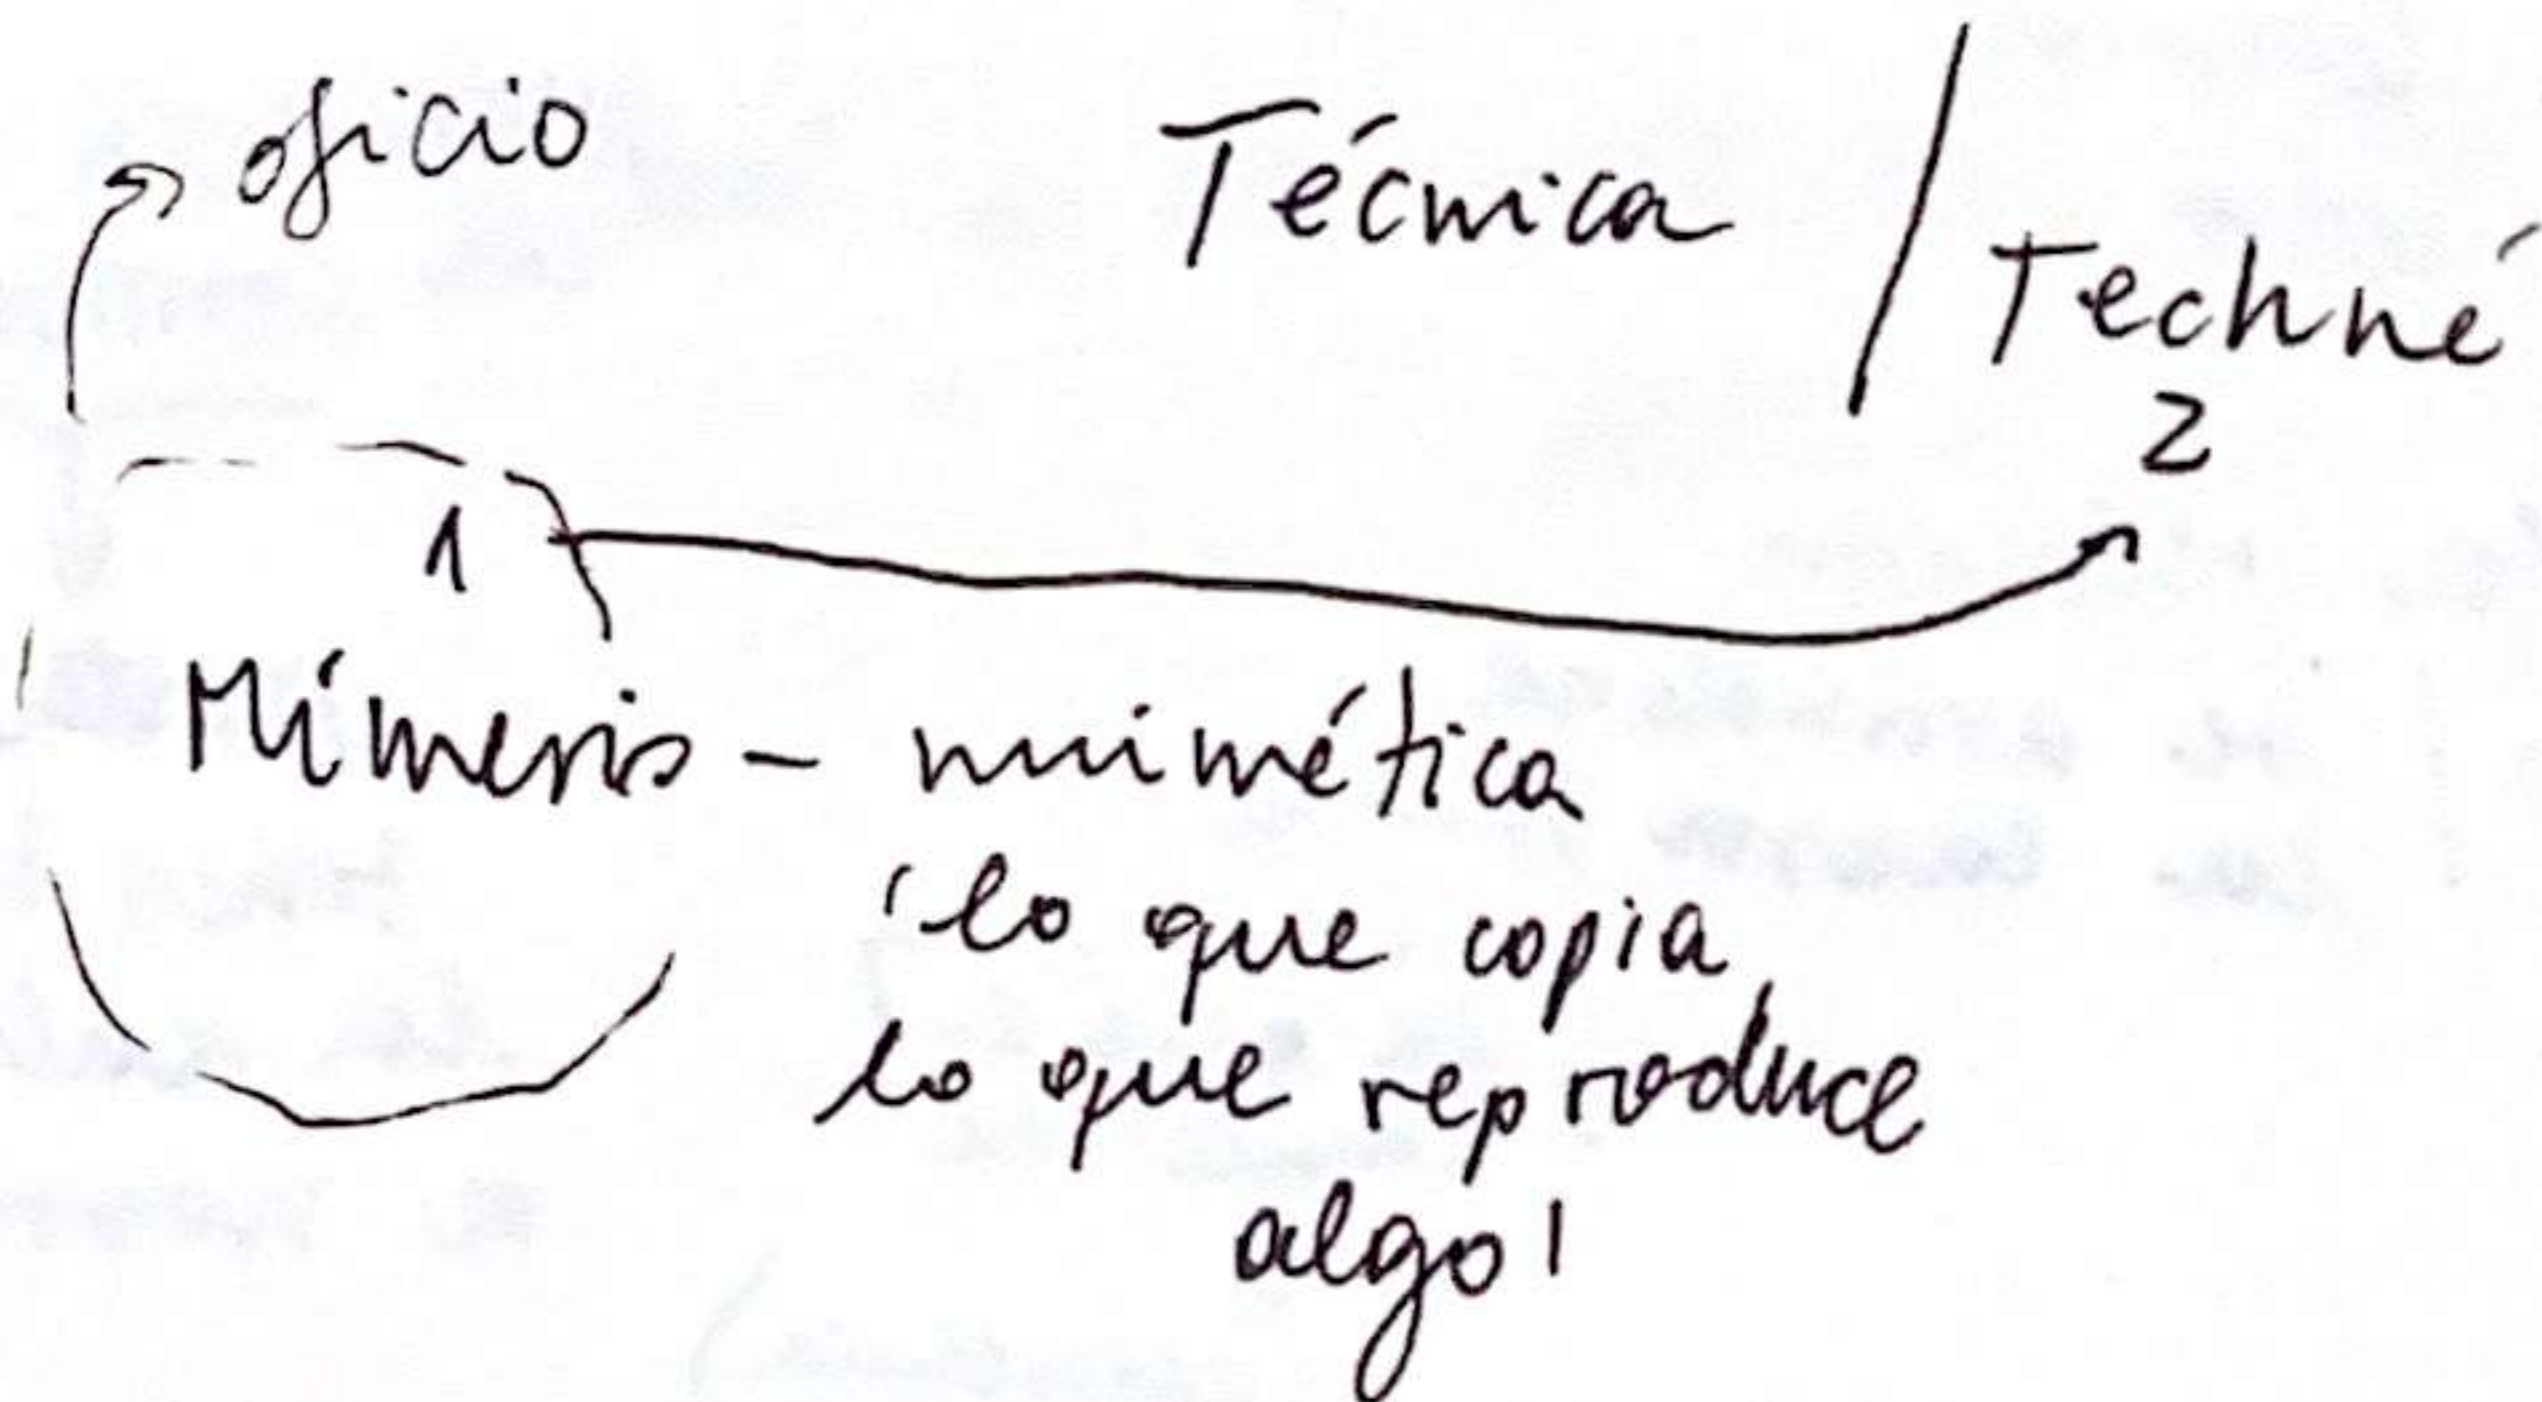 oficio
Técnica / Techné
1 2
Mímesis - mimética
'lo que copia,
lo que reproduce
algo'